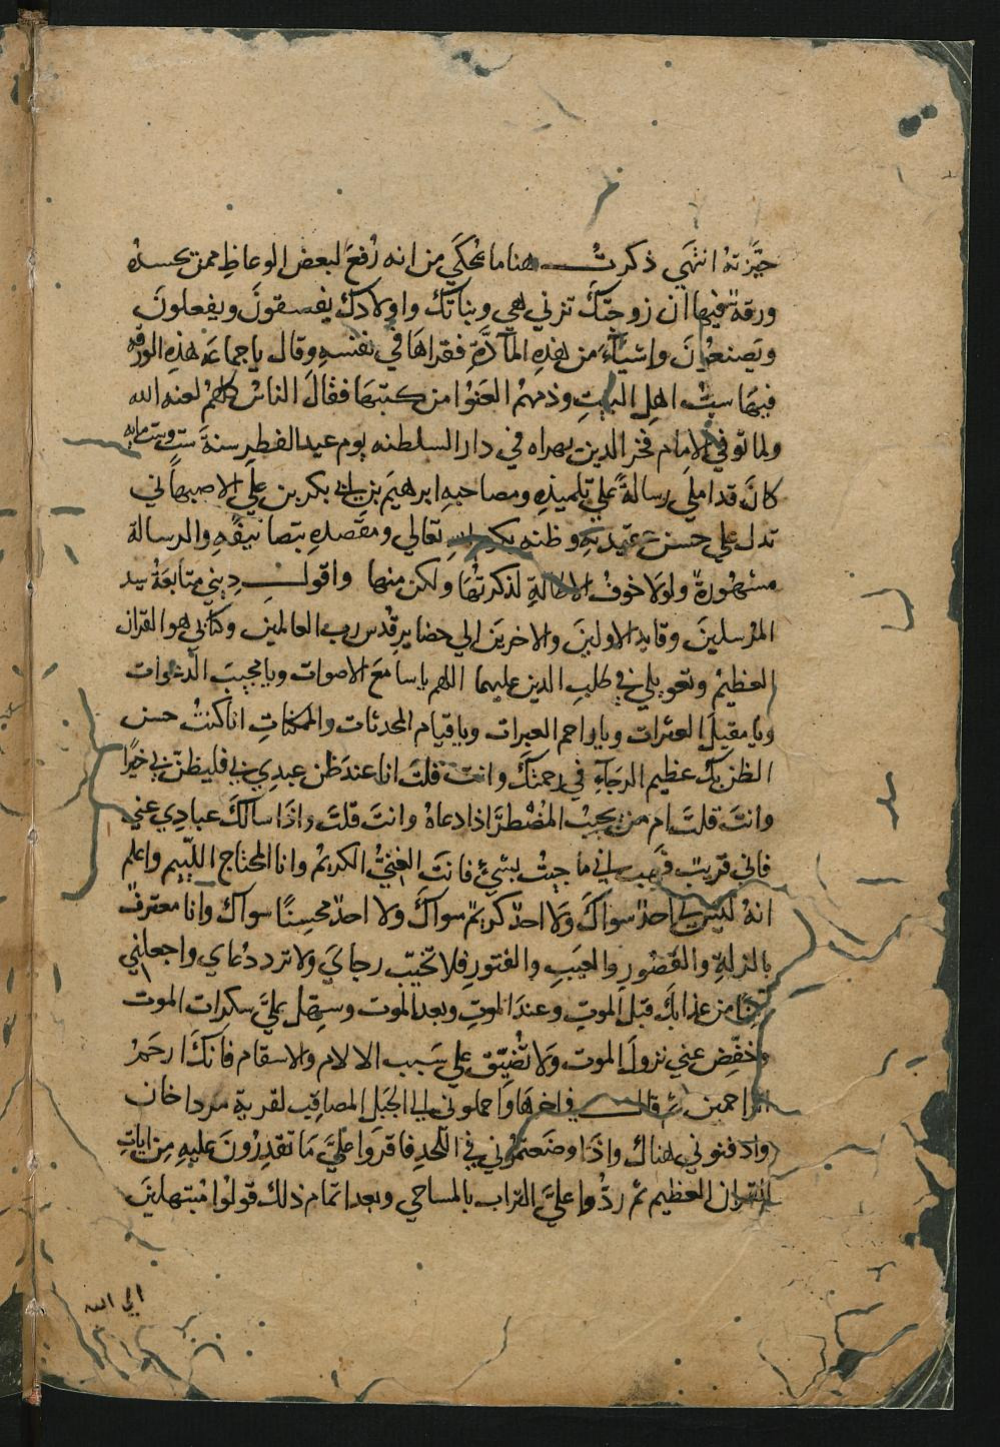 حيّزته انتهي ذكرت هنا ما يحكي من انه رُفع لبعض الوعاظ ممن يحسده
ورقة فيها ان زوجتك تزني هي وبناتك واولادك يفسقون ويفعلون
ويصنعون واشياء من هذه المآدة فقراها في نفسه وقال يا جماعه هذه الورقه
فيها سب اهل البيت وذمهم العنوا من كتبها فقال الناس كلهم لعنه الله
ولما توفي الامام فخر الدين بهراه في دار السلطنه يوم عيد الفطر سنة ست وستمايه
كان قد املي رسالة علي تلميذه ومصاحبه ابرهيم بن ابي بكر بن علي الاصبهاني
تدل علي حسن عقيدته وظنه بكرم الله تعالي ومقصده بتصانيفه والرسالة
مشهورة ولولا خوف الاطالة لذكرتها ولكن منها واقول ديني متابعة سيد
المرسلين وقايد الاولين والاخرين الي حضاير قدس رب العالمين وكتابي هو القران
العظيم وتعويلي في طلب الدين عليهما اللهم يا سامع الاصوات ويا مجيب الدعوات
ويا مقيل العثرات ويا راحم العبرات ويا قيام المحدثات والممكنات انا كنت حسن
الظن بك عظيم الرجآء في رحمتك وانت قلت انا عند ظن عبدي بي فليظن بي خيرا
وانت قلت ام من يجيب المضطر اذا دعاه وانت قلت واذا سالك عبادي عني
فاني قريب فهب اني ما جيت بشيء فانت الغني الكريم وانا المحتاج اللئيم واعلم
انه ليس لي احد سواك ولا احد كريم سواك ولا احد محسنا سواك وانا معترف
بالزلة والقصور والعيب والفتور فلا تخيب رجاي ولا ترد دعاي واجعلني
امنا من عذابك قبل الموت وعند الموت وبعد الموت وسهل علي سكرات الموت
وخفض عني نزول الموت ولا تضيق علي سبب الالام والاسقام فانك ارحم
الراحمين ثم قال في اخرها واحملوني الي الجبل المصاقب لقرية مزداخان
وادفنوني هناك واذا وضعتموني في اللحد فاقروا علي ما تقدرون عليه من ايات
القران العظيم ثم ردوا علي التراب بالمساحي وبعد اتمام ذلك قولوا مبتهلين
الي الله